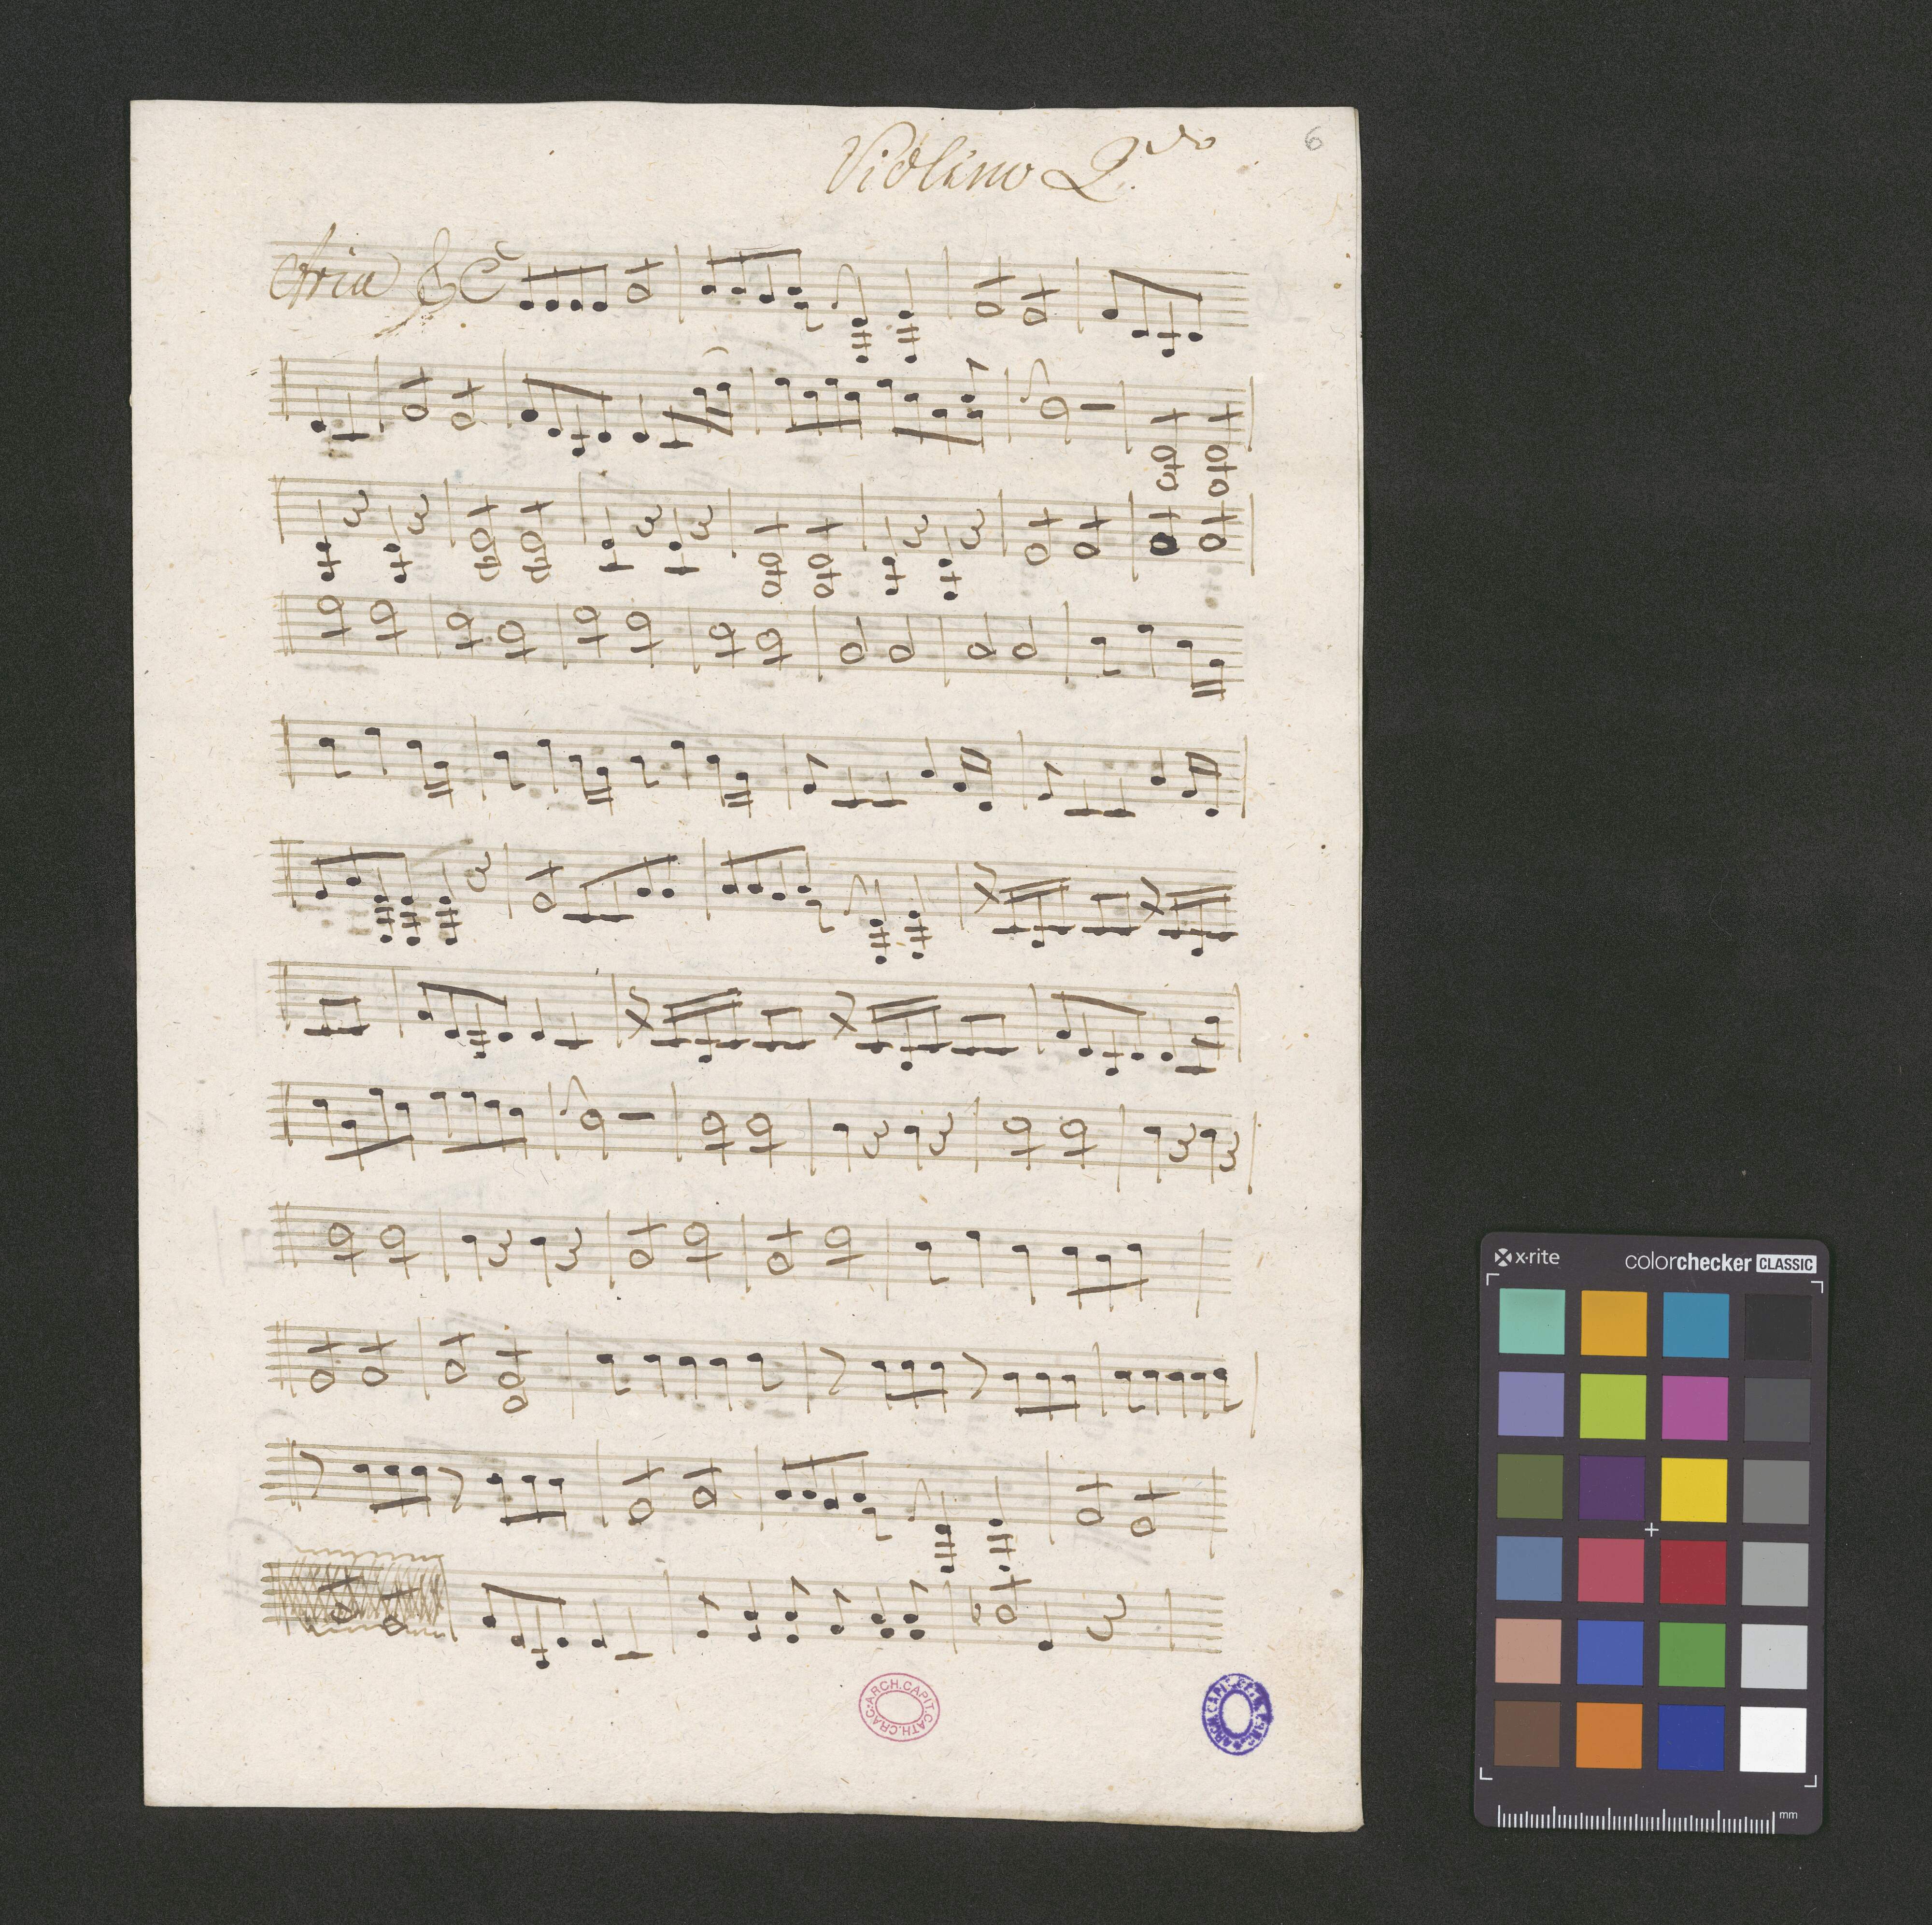 Violino 2.do
6
Aria
ARCH.CAPIT.CATH.CRAC.
x-rite
colorchecker CLASSIC
mm